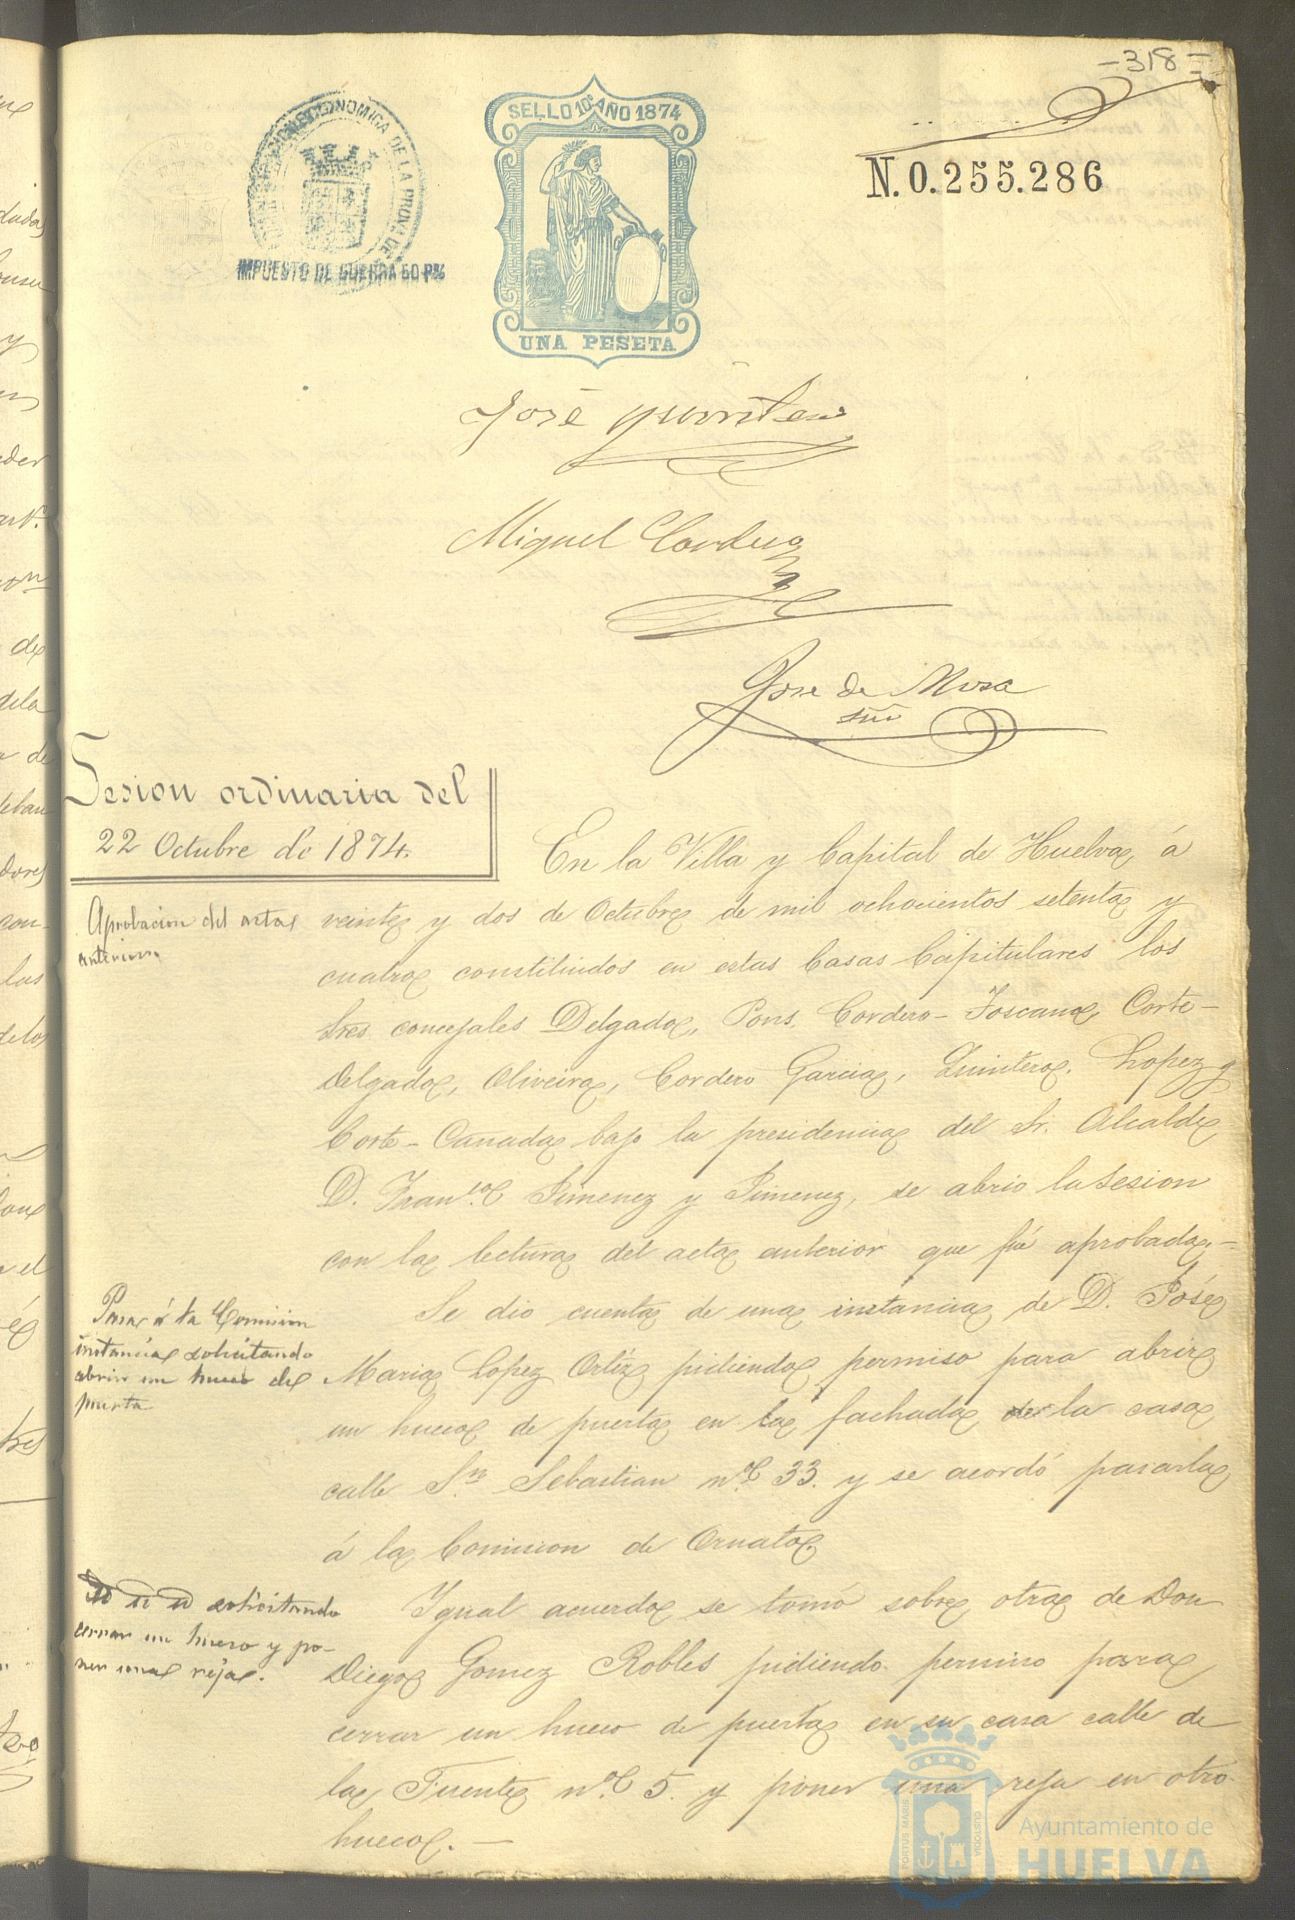 -318-
ADMINISTRACION ECONOMICA DE LA PROVA DE
IMPUESTO DE GUERRA 50 P%
SELLO 10º AÑO 1874
UNA PESETA
N. 0.255.286
José Quintero
Miguel Cordero
Jose de Mora
Srio
Sesion ordinaria del
22 Octubre de 1874.
Aprobacion del acta
anterior.
En la Villa y Capital de Huelva, á
veinte y dos de Octubre de mil ochocientos setenta y
cuatro constituidos en estas Casas Capitulares los
Sres. concejales Delgado, Pons, Cordero-Toscano, Corte-
Delgado, Oliveira, Cordero Garcia, Quintero, Lopez y
Corte-Cañada bajo la presidencia del Sr. Alcalde
D. Fran.co Jimenez y Jimenez, se abrio la Sesion
con la lectura del acta anterior que fué aprobada.-
Pasar á la Comision
instancia solicitando
abrir un hueco de
puerta
Se dio cuenta de una instancia de D. José
Maria Lopez Ortiz pidiendo permiso para abrir
un hueco de puerta en la fachada de la casa
calle Sn. Sebastian nº 33. y se acordó pasarla
á la Comision de Ornato.
solicitando
cerrar un hueco y po-
ner una reja.
Igual acuerdo se tomó sobre otra de Don
Diego Gomez Robles pidiendo permiso para
cerrar un hueco de puerta en su casa calle de
la Fuente nº 5. y poner una reja en otro
hueco.-
PORTUS MARIS CUSTODIA
Ayuntamiento de
HUELVA